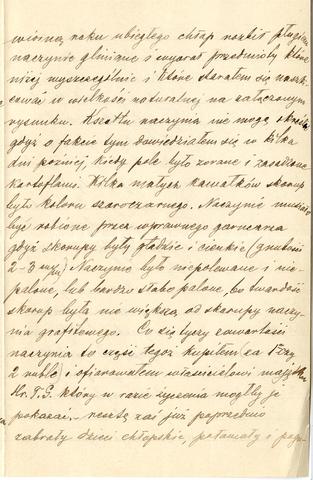 wiosną roku ubiegłego chłop rozbił pługiem
naczynie gliniane i wyorał przedmioty które
niżej wyszczególnię i które starałem się naszki-
cować w wielkości naturalnej na załączonym
rysunku. Kształtu naczynia nie mogę określić
gdyż o fakcie tym dowiedziałem się w kilka
dni później, kiedy pole było zorane i zasadzone
kartoflami. Kilka małych kawałków skorup
było koloru szaroczarnego. Naczynie musiało
być robione przez wprawnego garncarza
gdyż skorupy były gładzie i cienkie (grubość
2-3 m/m) Naczynie było niepolewane i nie-
palone, lub bardzo słabo palone, bo twardość
skorup była nie większą od skorupy naczy-
nia grafitowego. Co się tyczy zawartości
naczynia to część tegoż kupiłem (za
2 ruble) i ofiarowałem właścicielowi
Hr. T. G. który w razie życzenia mógłby je
pokazać, - resztę zaś już poprzednio
zabrały dzieci chłopskie, połamały i